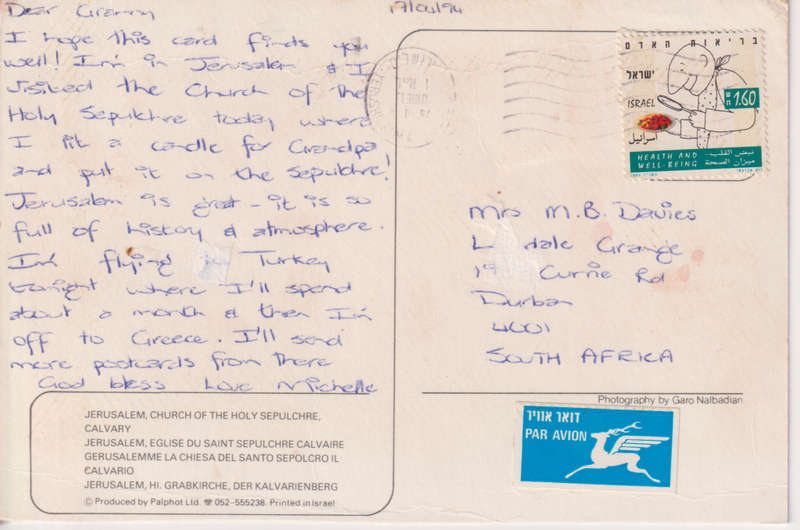 Dear Granny
17/04/94
I hope this card finds you
well! I'm in Jerusalem & I
visited the Church of the
Holy Sepulchre today where
I lit a candle for Grandpa
and put it on the sepulchre!
Jerusalem is great - it is so
full of history & atmosphere.
I'm flying Turkey
tonight where I'll spend
about a month & then I'm
off to Greece. I'll send
more postcards from there
God bless Love Michelle
בריאות האדם
ישראל
ISRAEL
اسرائيل
1.60
HEALTH AND
WELL-BEING
نبض القلب
ميزان الصحة
Mrs M.B. Davies
L dale Grange
Currie Rd
Durban
4001
SOUTH AFRICA
Photography by Garo Nalbadian
דואר אוויר
PAR AVION
JERUSALEM, CHURCH OF THE HOLY SEPULCHRE,
CALVARY
JERUSALEM, EGLISE DU SAINT SEPULCHRE CALVAIRE
GERUSALEMME LA CHIESA DEL SANTO SEPOLCRO IL
CALVARIO
JERUSALEM, HI. GRABKIRCHE, DER KALVARIENBERG
© Produced by Palphot Ltd. ☎ 052-555238. Printed in Israel